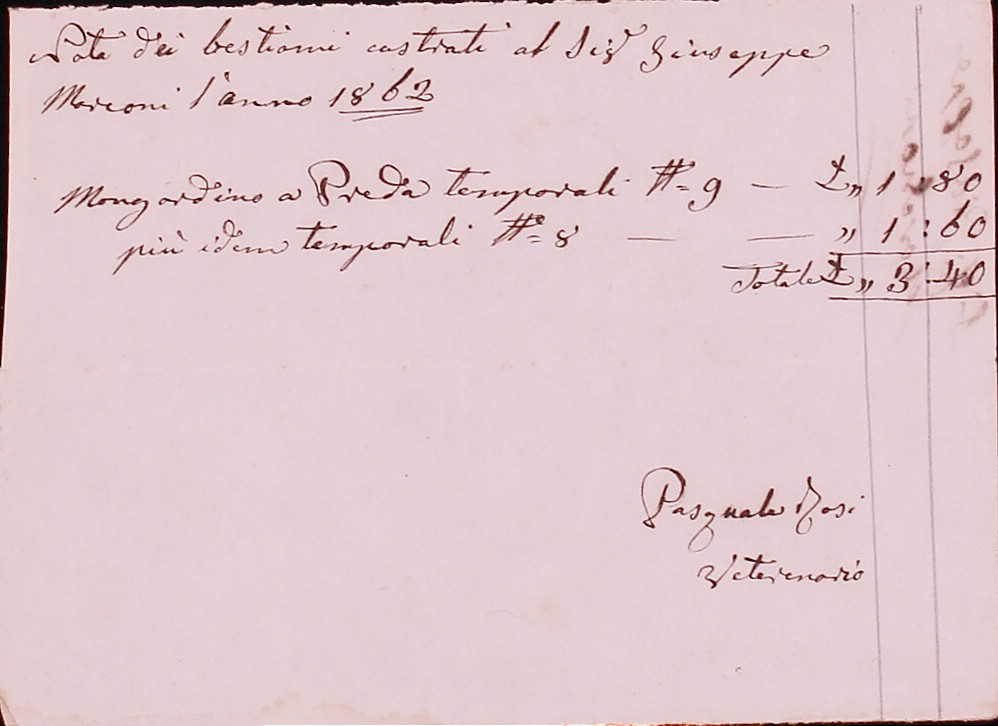 Nota dei bestiami castrati al Sigr Giuseppe
Marconi l'anno 1862
Mongardino a Preda temporali N. 9 — £ „ 1 „ 80
più idem temporali No 8 — — „ 1 : 60
Totale £ „ 3 : 40
Pasquale Rosi
Veterenario